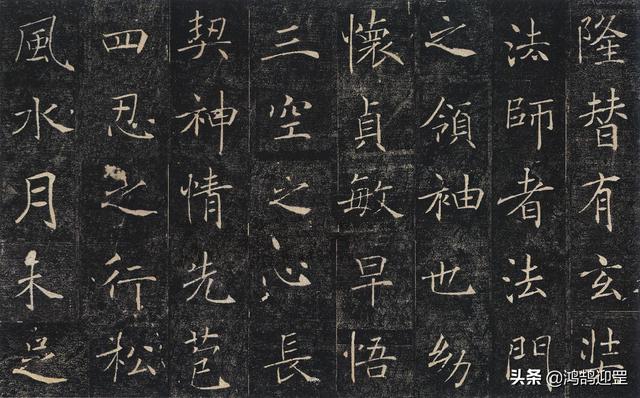 隆替有玄奘
法師者法門
之領袖也幼
懷貞敏早悟
三空之心長
契神情先苞
四忍之行松
風水月未足
头条 @鸿鹄迎罡